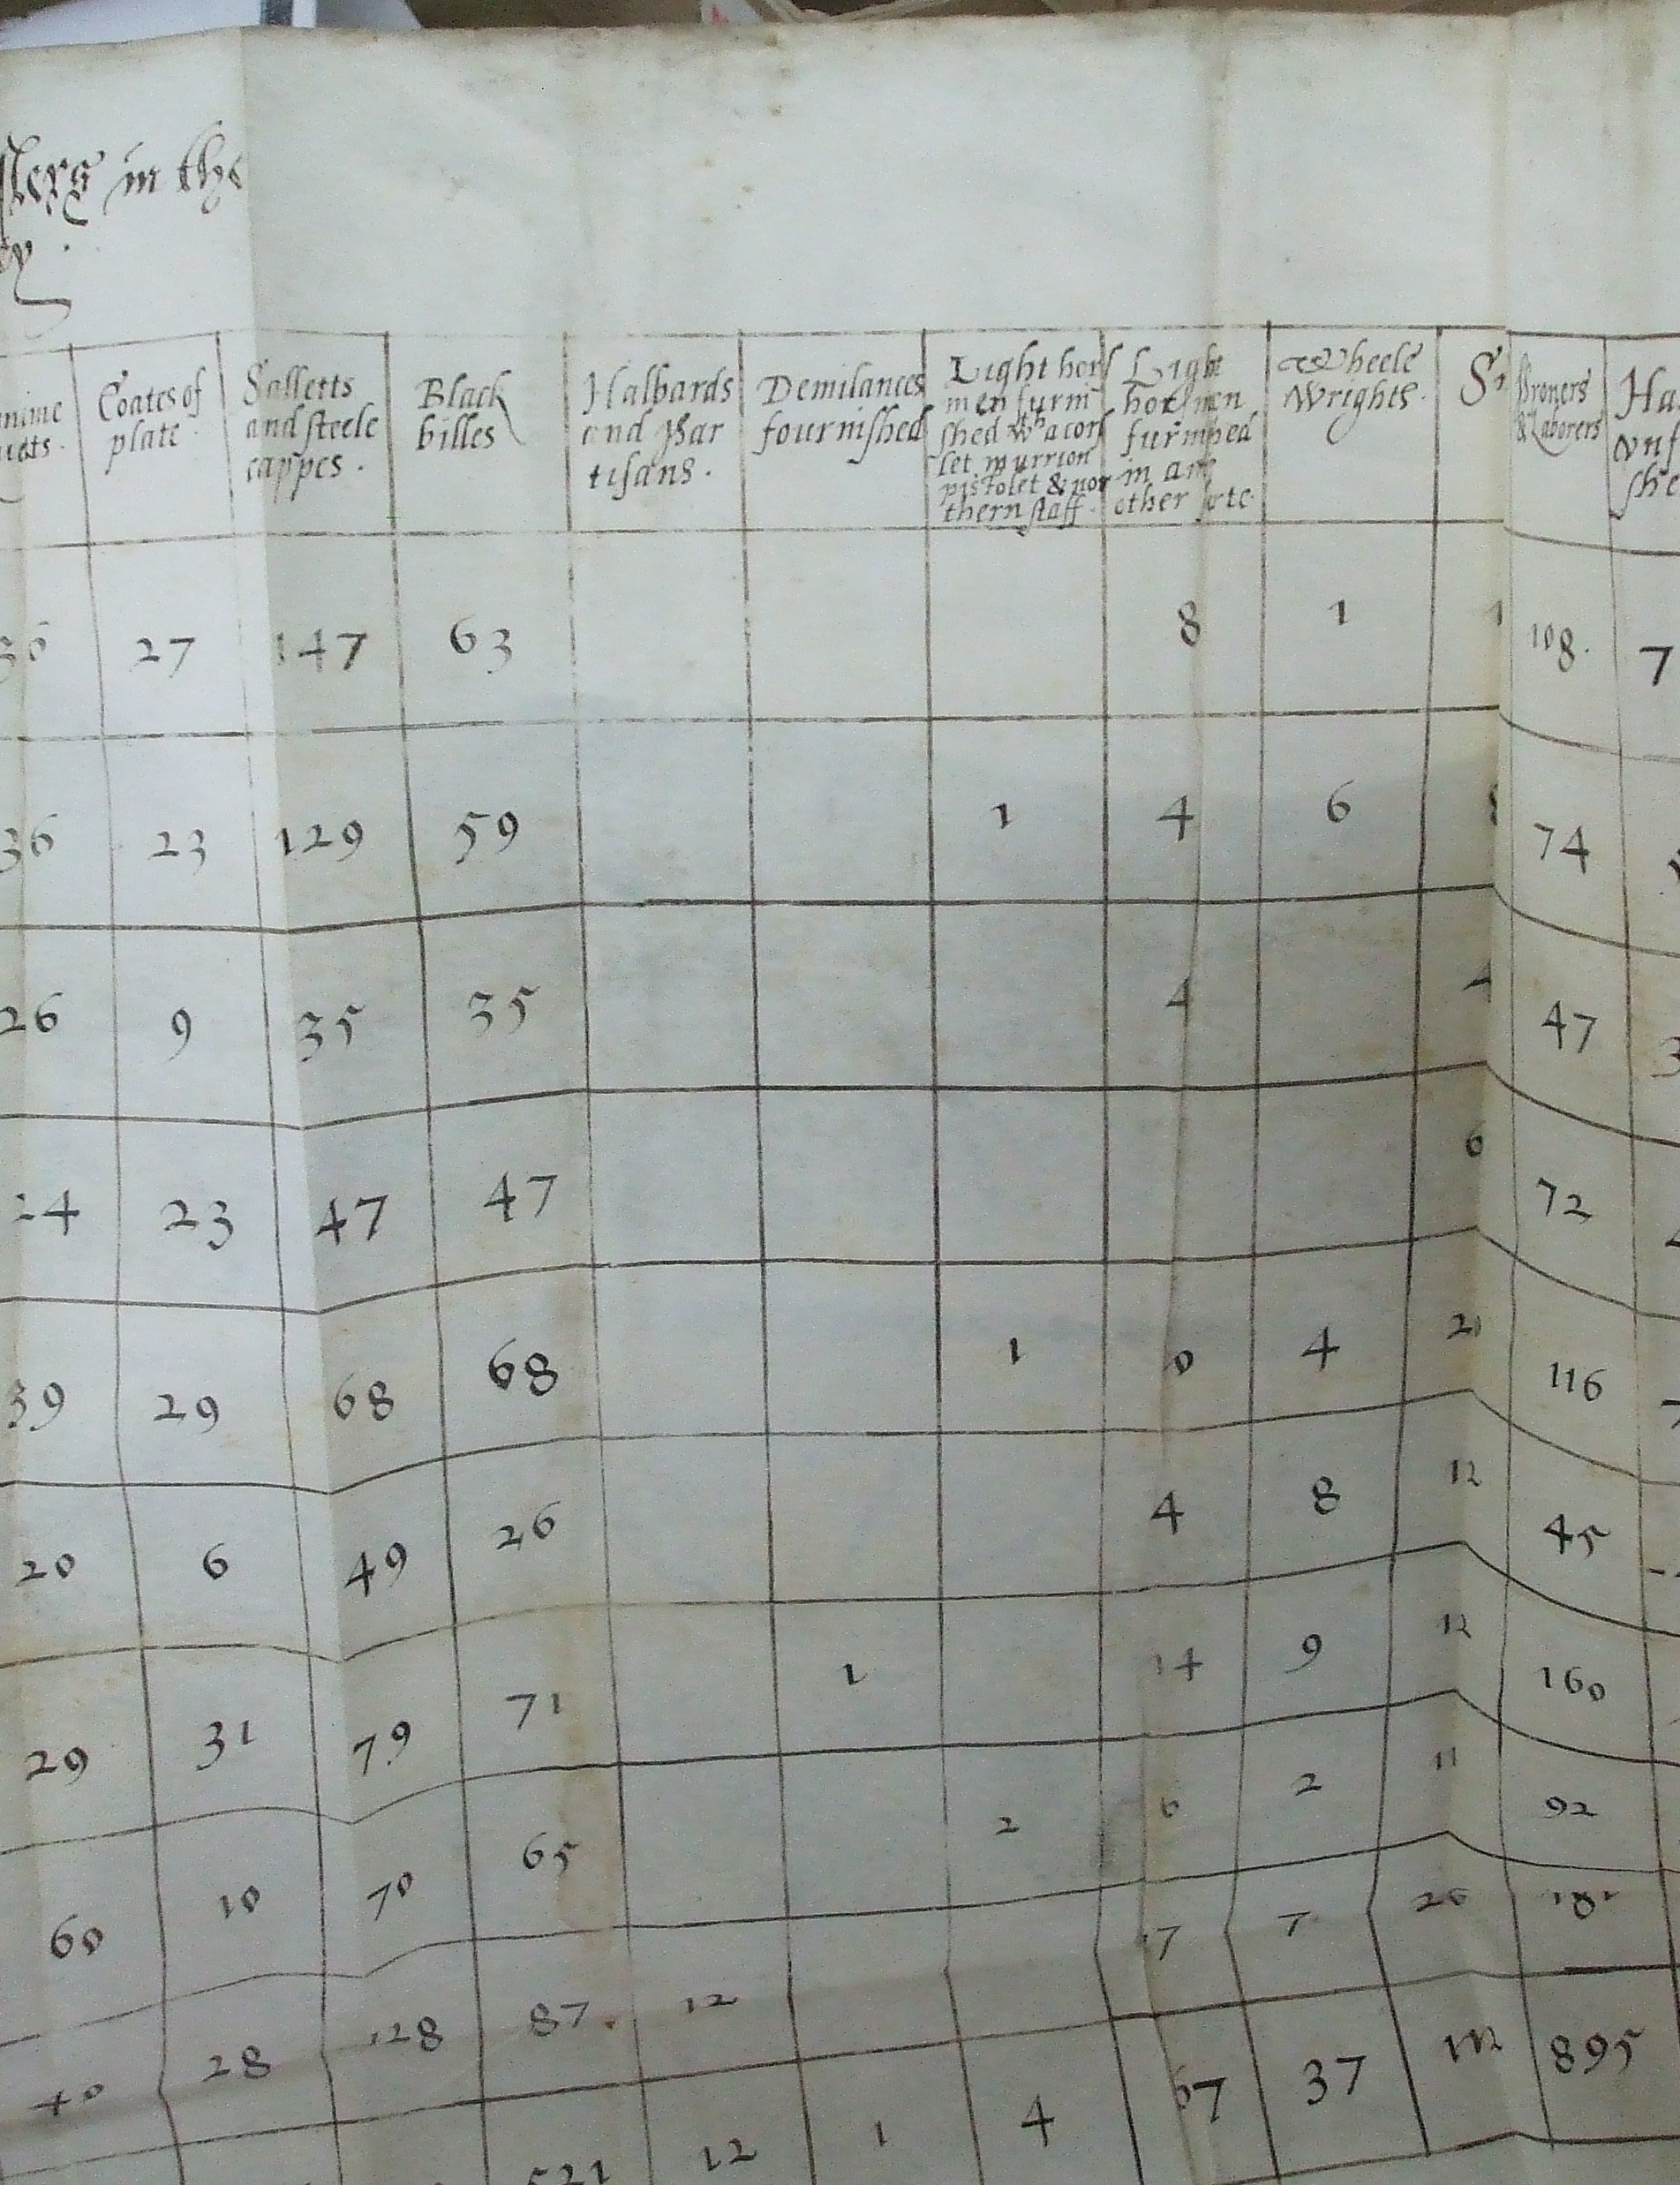 in the
Coates of
plate
Salletts
and steele
cappes .
Black
billes
Halbards
and Par
tisans .
Demilances
fournished
Light hors
men furni
shed wth a cors
let murrion
pistolet & nor
thern staff .
Light
horsmen
furnished
in anie
other sorte
Wheele
Wrights .
Pioners
& Laborers
27 147 63 8 1 108 . 7
36 23 129 59 1 4 6 74
26 9 35 35 4 4 47 3
24 23 47 47 6 72
39 29 68 68 1 0 4 116
20 6 49 26 4 8 12 45
29 31 79 71 1 14 9 12 160
60 10 70 65 2 6 2 11 92
40 28 128 87 . 12 7 7 26 181
521 12 1 4 67 37 895